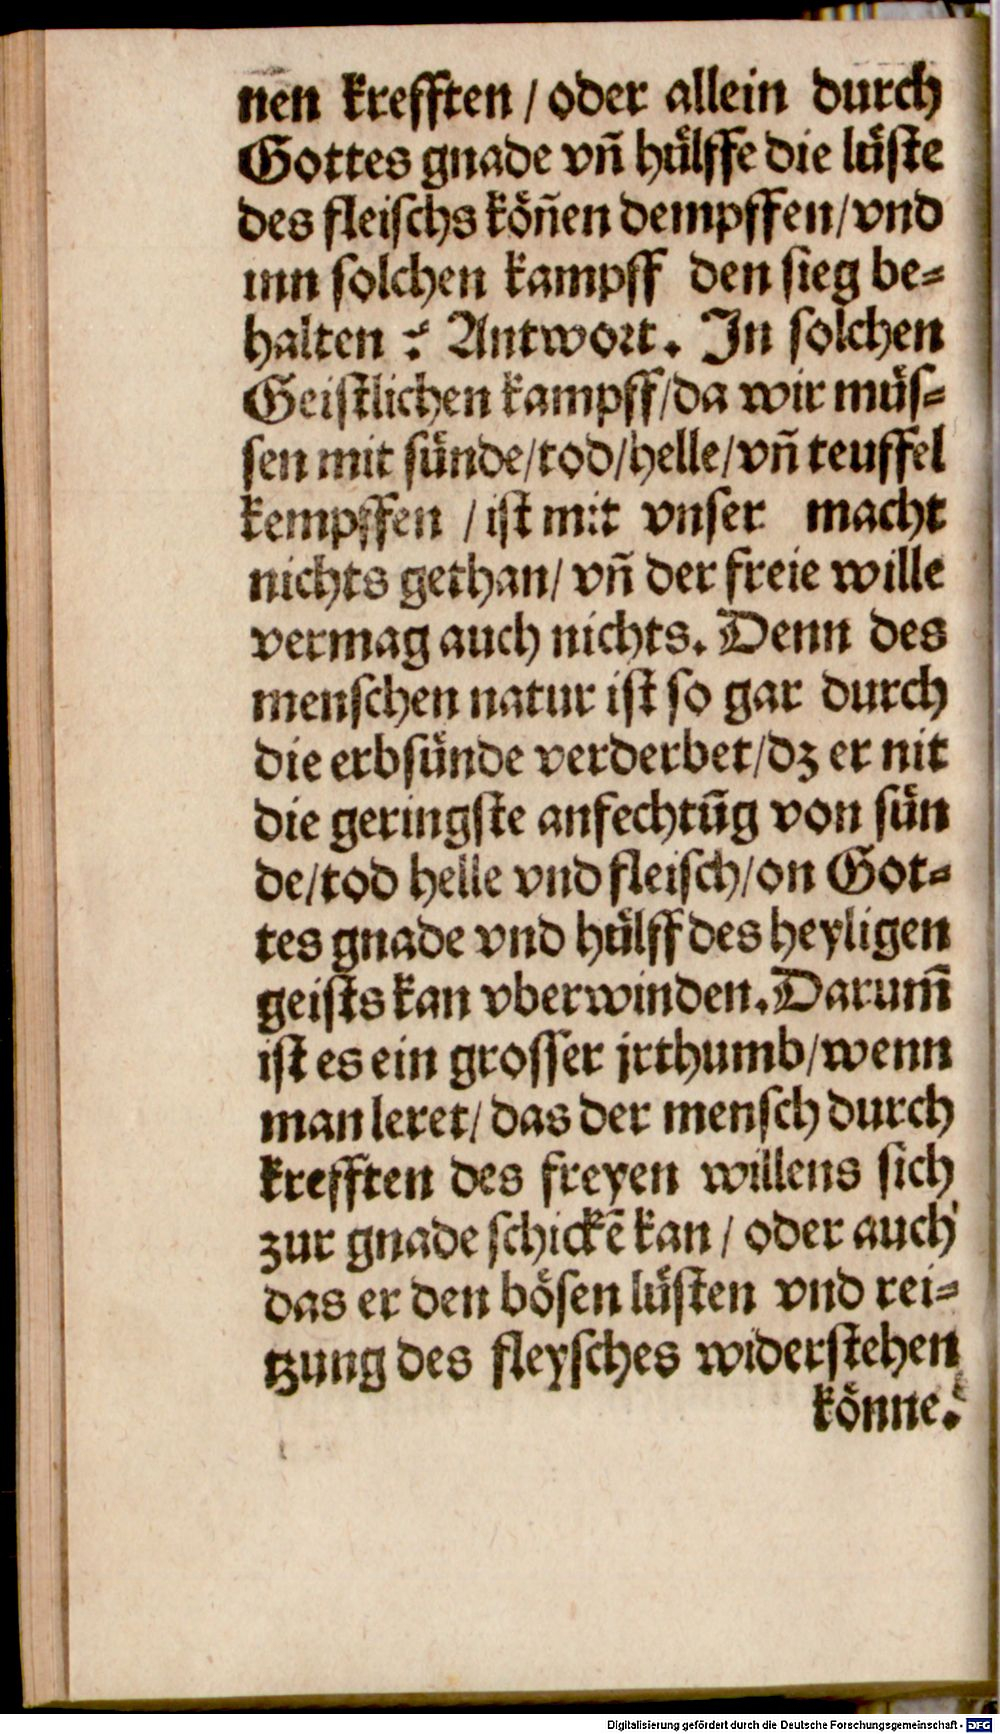 nen krefften / oder allein durch
Gottes gnade vñ huͤlffe die luͤſte
des fleiſchs koͤñen dempffen/vnd
inn ſolchen kampff den ſieg be⸗
halten ? Antwort. In ſolchen
Geiſtlichen kampff/da wir muͤſ⸗
ſen mit ſuͤnde/tod/helle/vñ teuffel
kempffen / iſt mit vnſer macht
nichts gethan/ vñ der freie wille
vermag auch nichts. Denn des
menſchen natur iſt ſo gar durch
die erbſuͤnde verderbet/dz er nit
die geringſte anfechtūg von ſuͤn
de/tod helle vnd fleiſch/on Got⸗
tes gnade vnd huͤlff des heyligen
geiſts kan vberwinden. Darum̄
iſt es ein groſſer jrthumb/wenn
man leret/ das der menſch durch
krefften des freyen willens ſich
zur gnade ſchickē kan / oder auch
das er den boͤſen luͤſten vnd rei⸗
tzung des fleyſches widerſtehen
koͤnne.
Digitalisierung gefördert durch die Deutsche Forschungsgemeinschaft - DFG